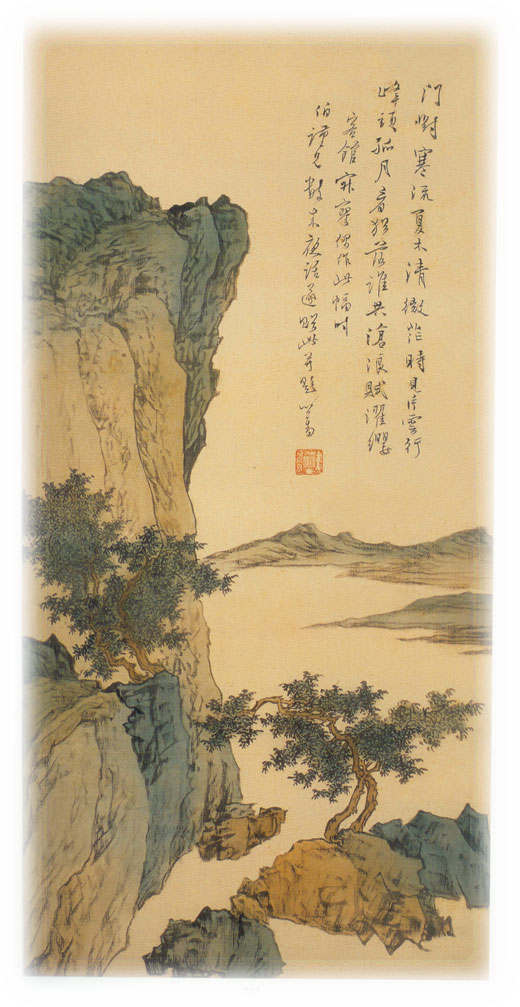 門對寒流夏木清微茫時見片雲行
峰頭孤月音猶落誰共滄浪賦濯纓
客館寂寥偶作此幅時
伯兄數來夜話遂贈此并題心畬